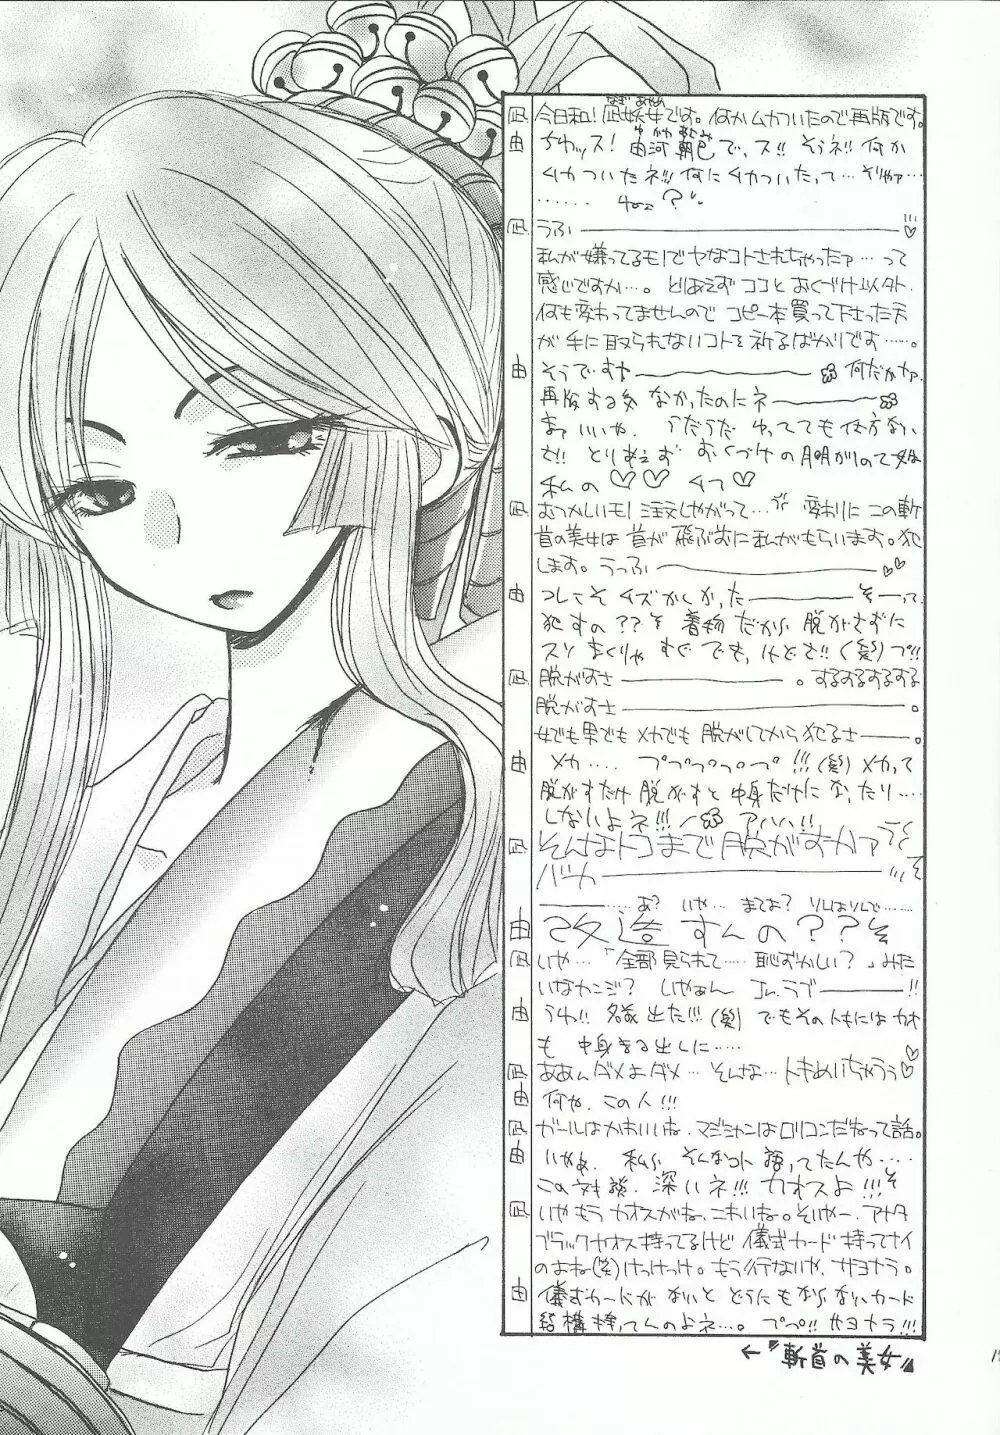 凪 今日和!凪妖女です。何かムカついたので再版です。
由 ちわッス!由河朝巳で、ス!!そうネ!!何か
ムカついたネ!!何にムカついたって…そりゃァ…
……
凪 うふ
私が嫌ってるモノでヤなコトされちゃったァ…って
感じですか…。とりあえずココとおくづけ以外
何も変わってませんのでコピー本買って下さった方
が手に取られないコトを祈るばかりです……。
由 そうですね 何だかァ、
再販する気なかったのにネ
まっいいや、うだうだゆってても仕方ない
さ!!とりあえずおくづけの
私の♡♡
凪 むつかしいモノ注文しやがって…変わりにこの斬
首の美女は首が飛ぶ前に私がもらいます。犯
します。うっふ
由 コレこそムズかしかった そーって、
犯すの??を着物だから脱がさずに
スソまくりゃすぐでも、けどさ!!(笑)プ!!
凪 脱がすさ 。するするするする
脱がすさ 。
女でも男でもメカでも脱がしてから犯るさ 。
由 メカ…、プププププ!!!(笑)メカって
脱がすだけ脱がすと中身だけになったり…、
しないよネ!!!アハハ!!
凪 そんなトコまで脱がすかァ
バカ
……、あ?いや…まてよ?りんりんで……
由 改造すんの??
凪 いや…「全部見られて…、恥ずかしい?」みた
いなカンジ?いやぁん Jm.ラブ !!
由 うわ!!名前出た!!!(笑)でもそのトキにはカオ
も中身まる出しに……
凪 ああんダメよダメ…そんな…トキめいちゃうう♡
由 何や、この人!!!
凪 ガールはかわいいね、マジシャンはロリコンだねって話。
由 いやぁ、私らそんなコト語ってたんや…
この対談、深いネ!!!カオスよ!!!
凪 いやもうカオスがね、こわいね。そいやー、アナタ
ブラックカオス持ってるけど儀式カード持ってナイ
のよね(笑)けっけっけ。もう行ないや、サヨナラ。
由 儀式カードがないとどうにもならないカード
結構持ってんのよネ…。ププ!!サヨナラ!!!
←『斬首の美女』